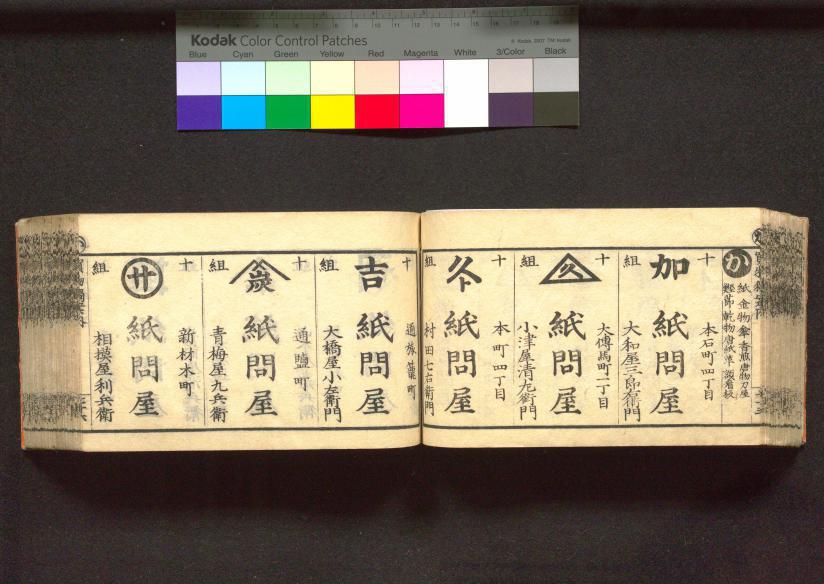 Kodak Color Control Patches
© Kodak, 2007 TM: Kodak
Blue Cyan Green Yellow Red Magenta White 3/Color Black
か
紙 金物 傘 唐物 刀屋
鰹節 乾物 唐紙
十組
加
紙問屋
本石町四丁目
大和屋三郎右衛門
十組
久
紙問屋
大傳馬町一丁目
小津屋清左衛門
十組
久
紙問屋
本町四丁目
村田七右衛門
十組
吉
紙問屋
通旅籠町
大橋屋小左衛門
十組
歳
紙問屋
通塩町
青梅屋九兵衛
十組
廿
紙問屋
新材木町
相模屋利兵衛